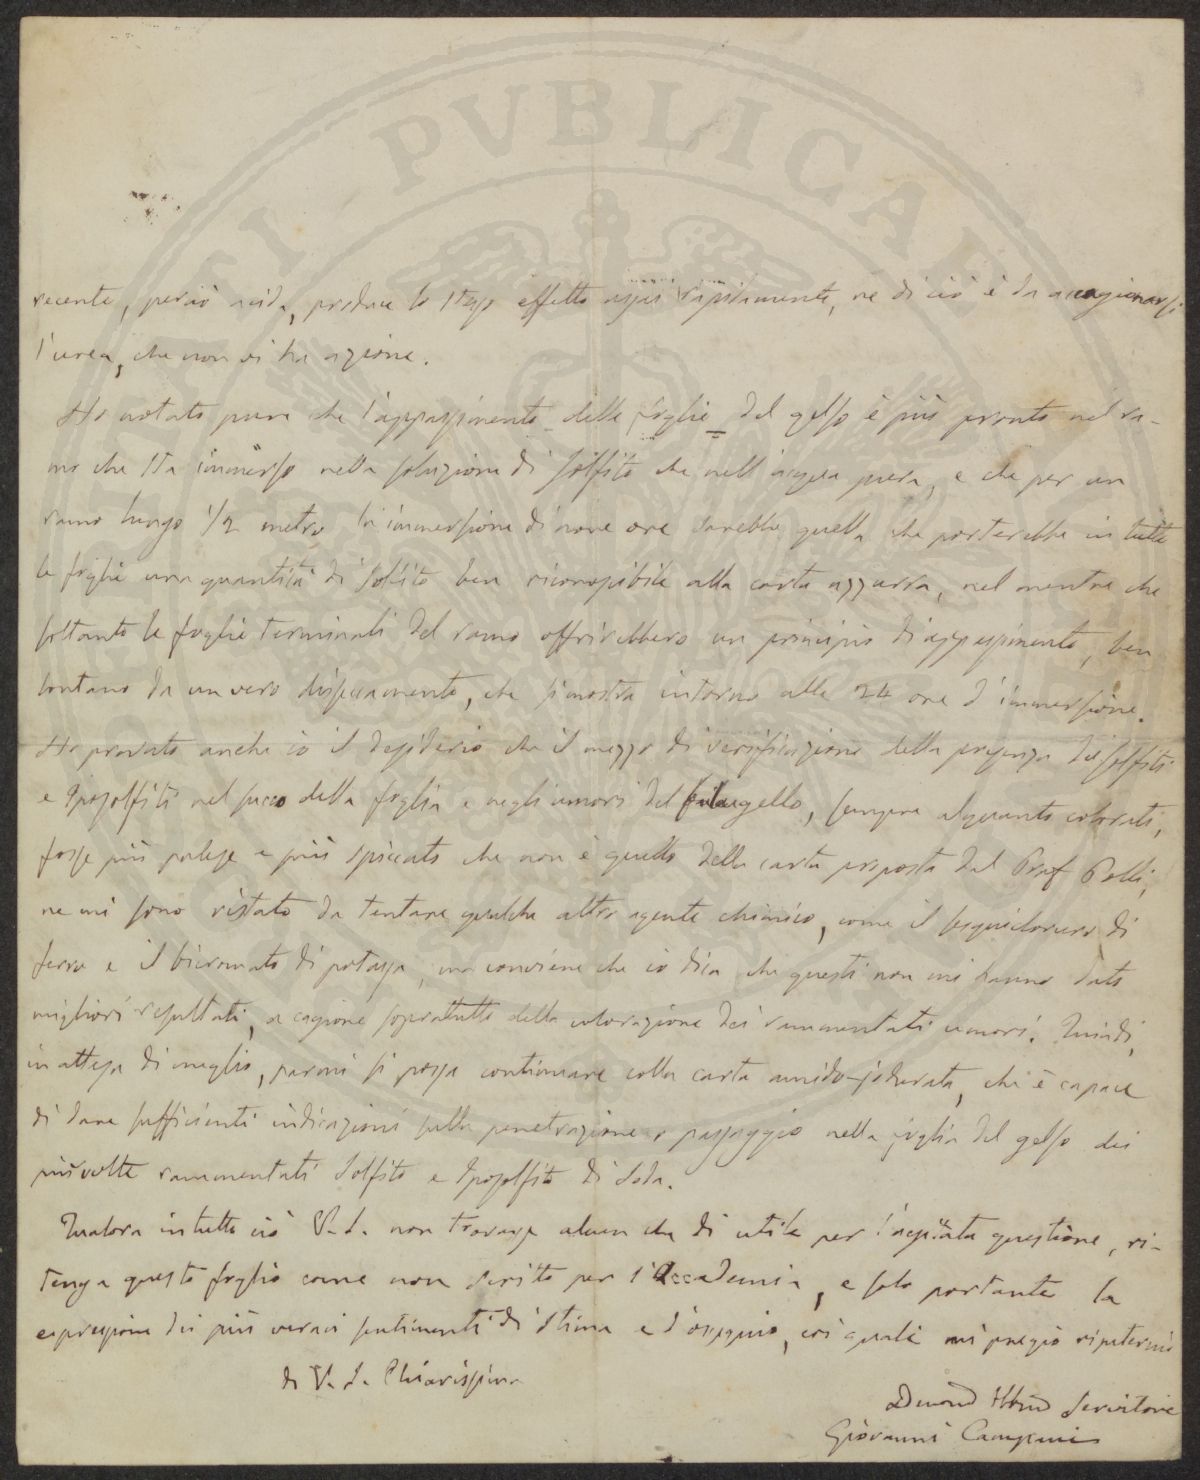 PVBLICAE
recente, perciò acida, produce lo stesso effetto assai rapidamente, ne di ciò è da accagionarsi
l'urea, che non vi ha azione.
Ho notato pure che l'appassimento delle foglie del gelso è più pronto nel ra-
mo che sta immerso nella soluzione di solfito che nell'acqua pura, e che per un
ramo lungo 1/2 metro la immersione di nove ore sarebbe quella che porterebbe in tutte
le foglie una quantità di solfito ben riconoscibile alla carta azzurra, nel mentre che
soltanto le foglie terminali del ramo offrirebbero un principio di appassimento, ben
lontano da un vero disseccamento, che si mostra intorno alle 24 ore d'immersione.
Ho provato anche io il desiderio che il mezzo di verificazione della presenza dei solfiti
e iposolfiti nel succo della foglia e negli umori del filugello, sempre alquanto colorati,
fosse più palese e più spiccato che non è quello della carta proposta dal Prof Polli,
ne mi sono ristato da tentare qualche altro agente chimico, come il sesquicloruro di
ferro e il bicromato di potassa, ma conviene che io dica che questi non mi hanno dato
migliori resultati, a cagione sopratutto della colorazione dei rammentati umori. Quindi,
in attesa di meglio, parmi si possa continuare colla carta amido-jodurata, che è capace
di dare sufficienti indicazioni sulla penetrazione e passaggio nella foglia del gelso dei
più volte rammentati Solfito e Iposolfito di Soda.
Qualora in tutto ciò V. S. non trovasse alcun che di utile per l'agitata questione, ri-
tenga questo foglio come non scritto per l'Accademia, e solo portante la
espressione dei più veraci sentimenti di stima e d'ossequio, coi quali mi pregio ripetermi
di V. S. Chiarissima
Servitore
Giovanni Campani